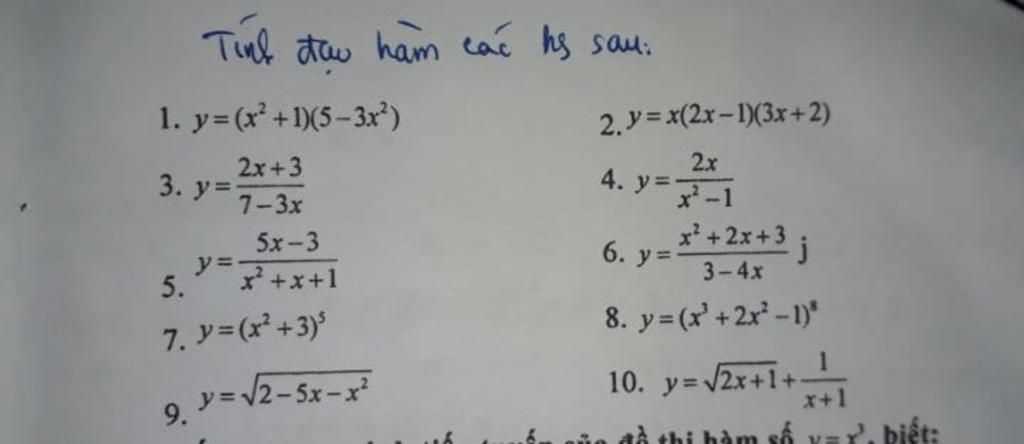 Tính đạo hàm các hs sau:
1. y = (x² + 1)(5 − 3x²)
2. y = x(2x − 1)(3x + 2)
3. y = \frac{2x + 3}{7 − 3x}
4. y = \frac{2x}{x² − 1}
5. y = \frac{5x − 3}{x² + x + 1}
6. y = \frac{x² + 2x + 3}{3 − 4x} j
7. y = (x² + 3)⁵
8. y = (x³ + 2x² − 1)⁸
9. y = \sqrt{2 − 5x − x²}
10. y = \sqrt{2x + 1} + \frac{1}{x + 1}
tiếp tuyến của đồ thị hàm số y = x³, biết: